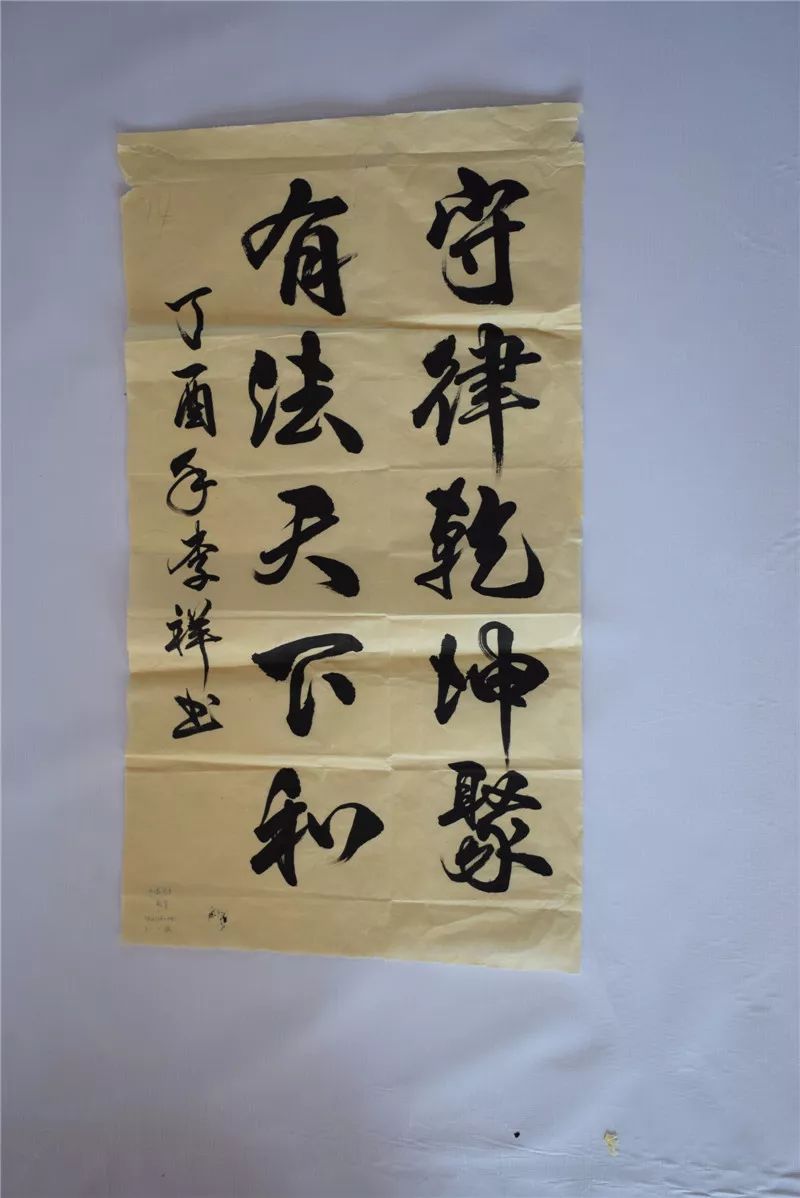 守律乾坤聚
有法天下和
丁酉年李祥书
14